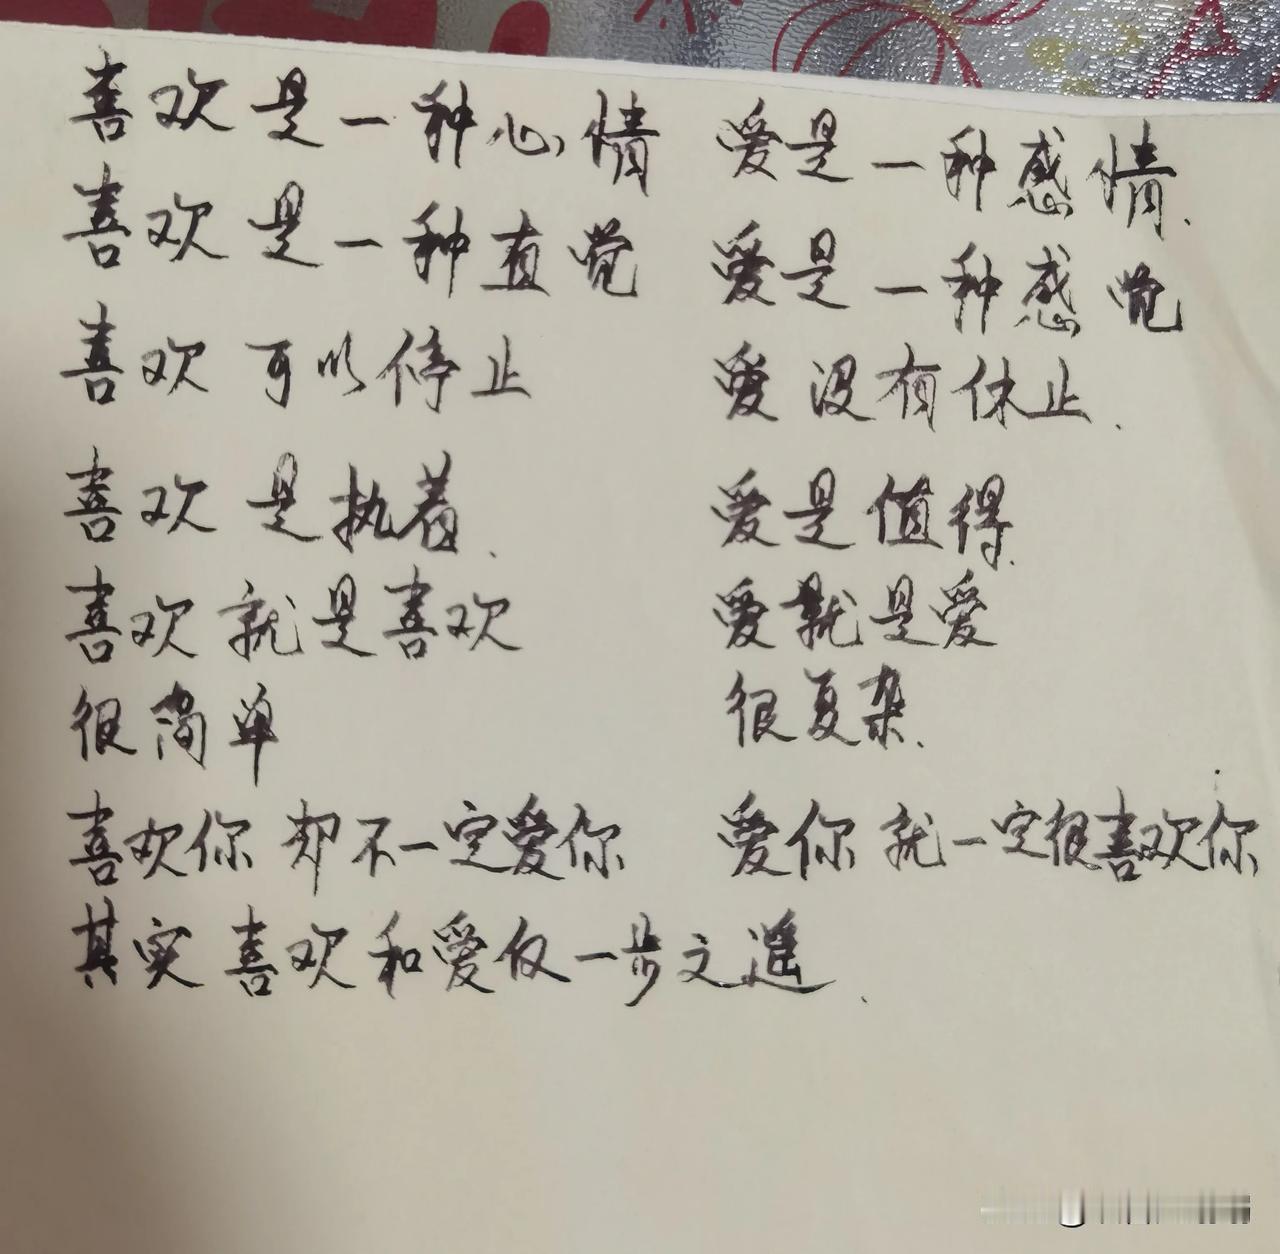 喜欢是一种心情 爱是一种感情.
喜欢是一种直觉 爱是一种感觉
喜欢可以停止 爱没有休止.
喜欢是执着. 爱是值得.
喜欢就是喜欢 爱就是爱
很简单 很复杂.
喜欢你却不一定爱你 爱你就一定很喜欢你
其实喜欢和爱仅一步之遥.